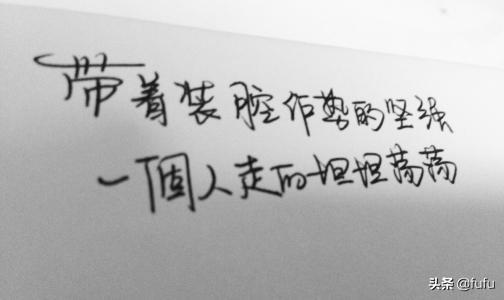 带着装腔作势的坚强
一個人走的坦坦荡荡
头条 @fufu